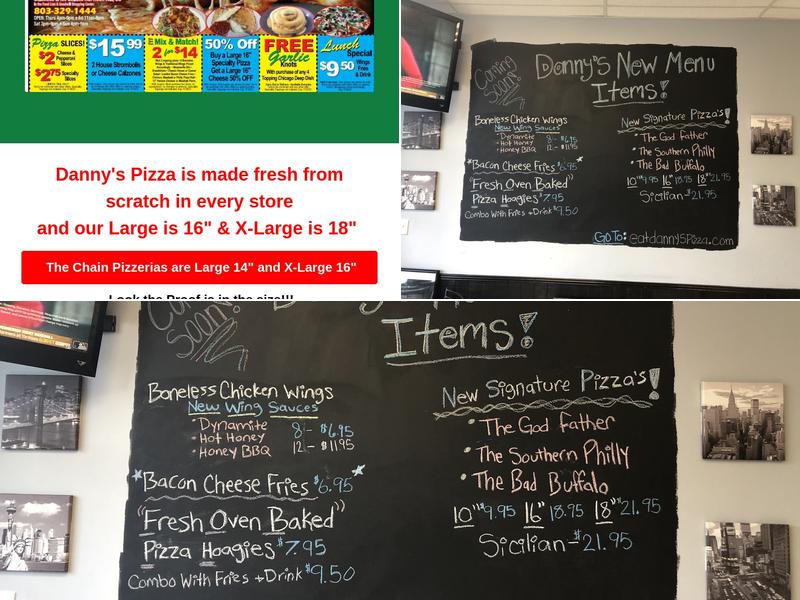 803-329-1444
Pizza SLICES!
$2 Cheese & Pepperoni Slices
$2.75 Specialty Slices
$15.99
2 House Strombolis
or Cheese Calzones
Mix & Match!
2 for $14
50% Off
Buy a Large 16"
Specialty Pizza
Get a Large 16"
Cheese 50% OFF
FREE
Garlic
Knots
With purchase of any 4
Topping Chicago Deep Dish
Lunch
Special
$9.50 Wings Fries & Drink
Danny's Pizza is made fresh from
scratch in every store
and our Large is 16" & X-Large is 18"
The Chain Pizzerias are Large 14" and X-Large 16"
Look the Proof is in the size!!!
Coming Soon!
Danny's New Menu
Items!
Boneless Chicken Wings
New Wing Sauces
• Dynamite
• Hot Honey 8 - $6.95
• Honey BBQ 12 - $11.95
*Bacon Cheese Fries $6.95*
"Fresh Oven Baked"
Pizza Hoagies $7.95
Combo With Fries + Drink $9.50
New Signature Pizza's!
• The God Father
• The Southern Philly
• The Bad Buffalo
10" $9.95 16" 18.95 18" $21.95
Sicilian - $21.95
Go To: @eatdanny5pizza.com
Coming Soon!
Items!
Boneless Chicken Wings
New Wing Sauces
• Dynamite 8 - $6.95
• Hot Honey 12 - $11.95
• Honey BBQ
*Bacon Cheese Fries $6.95*
"Fresh Oven Baked"
Pizza Hoagies $7.95
Combo With Fries + Drink $9.50
New Signature Pizza's!
• The God Father
• The Southern Philly
• The Bad Buffalo
10" $9.95 16" 18.95 18" $21.95
Sicilian - $21.95